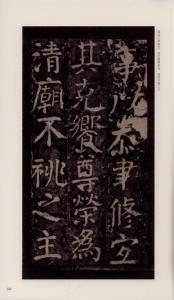 事以恭聿修宜
其克饗尊榮為
清廟不祧之主